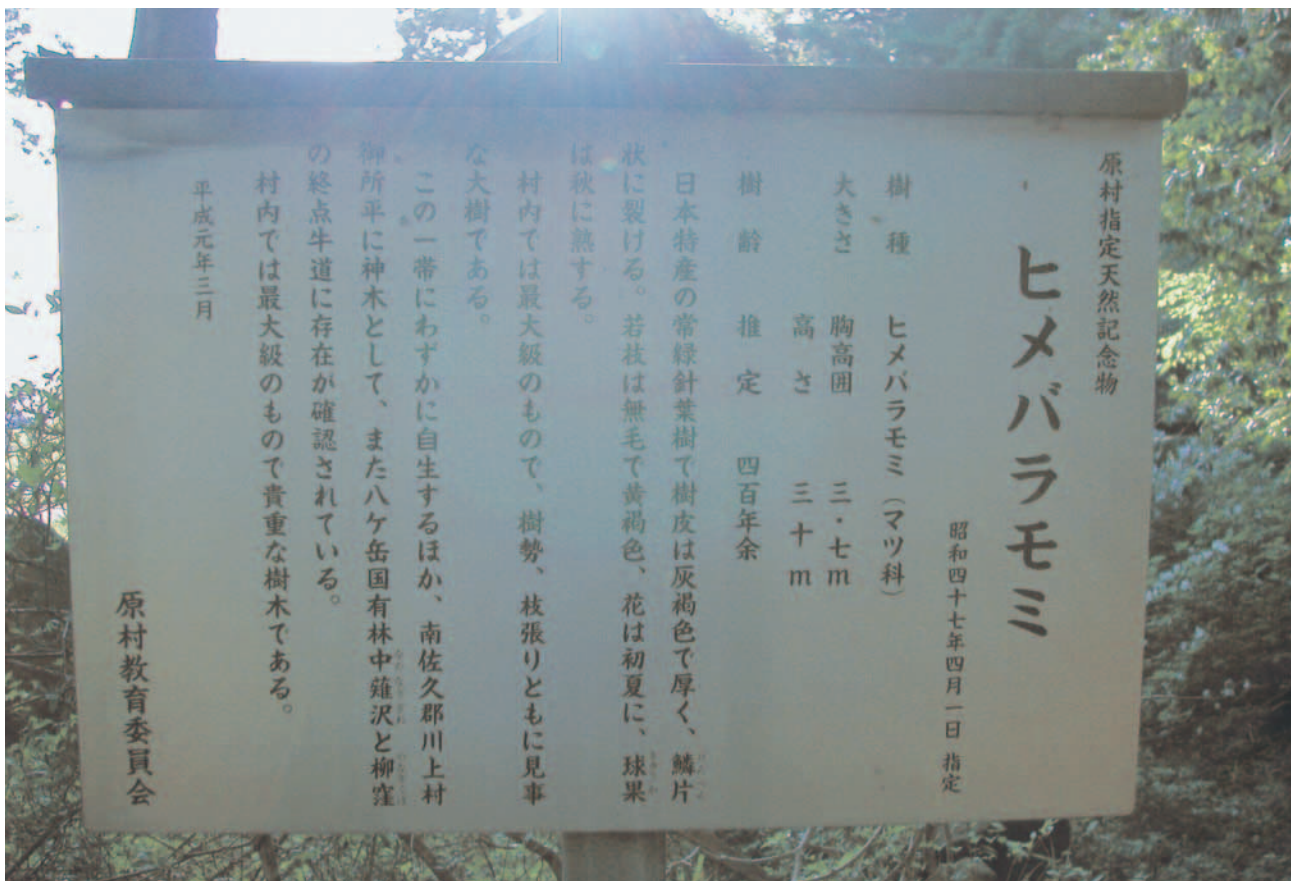 原村指定天然記念物
ヒメバラモミ
昭和四十七年四月一日 指定
樹種 ヒメバラモミ（マツ科）
大きさ 胸高囲 三・七m
高さ 三十m
樹齢 推定 四百年余
日本特産の常緑針葉樹で樹皮は灰褐色で厚く、鱗片
状に裂ける。若枝は無毛で黄褐色、花は初夏に、球果
は秋に熟する。
村内では最大級のもので、樹勢、枝張りともに見事
な大樹である。
この一帯にわずかに自生するほか、南佐久郡川上村
御所平に神木として、また八ケ岳国有林中薙沢と柳窪
の終点牛道に存在が確認されている。
村内では最大級のもので貴重な樹木である。
平成元年三月
原村教育委員会